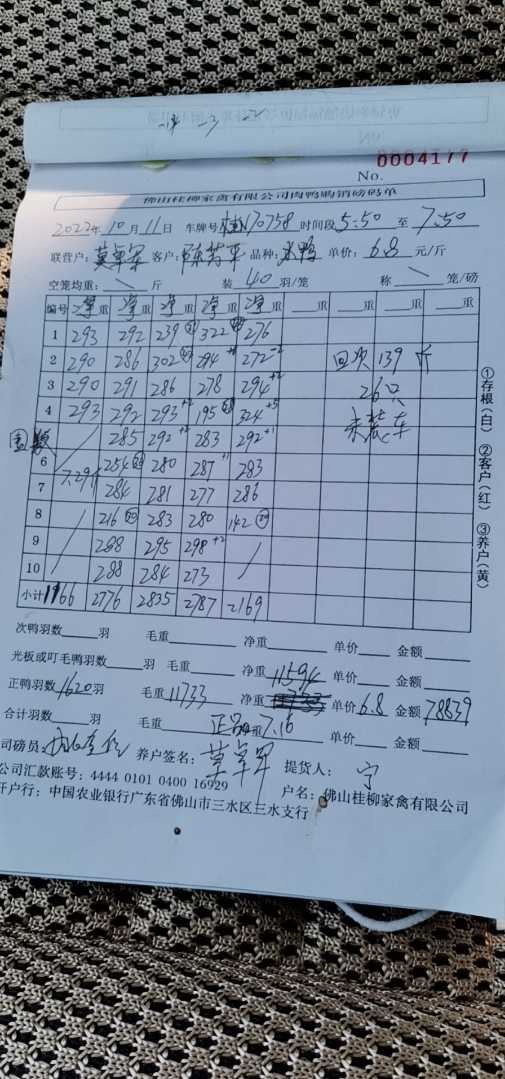 No. 0004177
佛山桂柳家禽有限公司肉鸭购销磅码单
2022年10月11日 车牌号 170758 时间段 5:50 至 7:50
联营户: 莫卓军 客户: 品种: 单价: 6.8 元/斤
空笼均重: \ 斤 装 40 羽/笼 称 \ 笼/磅
编号 净重 净重 净重 净重 净重 重 重 重 重
1 293 292 239 322 276
2 290 286 302 294 272 -2 回次 139 斤
3 290 291 286 278 294 +2 26只
4 293 292 293 +2 195 324 +5 未装车
285 292 +2 283 292 +1
6 7.29斤 254 280 287 +1 283
7 284 281 277 286
8 216 283 280 142
9 288 295 298 +2
10 288 284 273
小计 1166 2776 2835 2787 2169
次鸭羽数 羽 毛重 净重 单价 金额
光板或叮毛鸭羽数 羽 毛重 净重 11594 单价 金额
正鸭羽数 1620 羽 毛重 11733 净重 单价 6.8 金额 78839
合计羽数 羽 毛重 正品均重 7.16 单价 金额
司磅员: 养户签名: 莫卓军 提货人: 宁
公司汇款账号: 4444 0101 0400 16929 户名: 佛山桂柳家禽有限公司
开户行: 中国农业银行广东省佛山市三水区三水支行
①存根(白) ②客户(红) ③养户(黄)